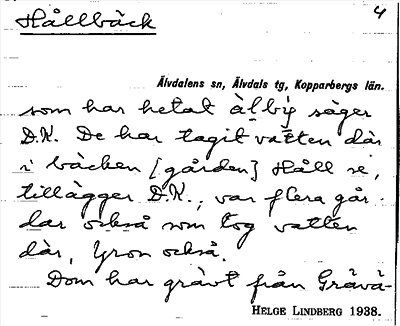 Hållbäck
4
Älvdalens sn, Älvdals tg, Kopparbergs län.
som har hetat àlbẏ säger
D.K. De har tagit vatten där
i bäcken [gården] Håll se,
tillägger D.K., var flera går-
dar också som tog vatten
där, Yron också.
Dom har grävt från Gråvä-
HELGE LINDBERG 1938.